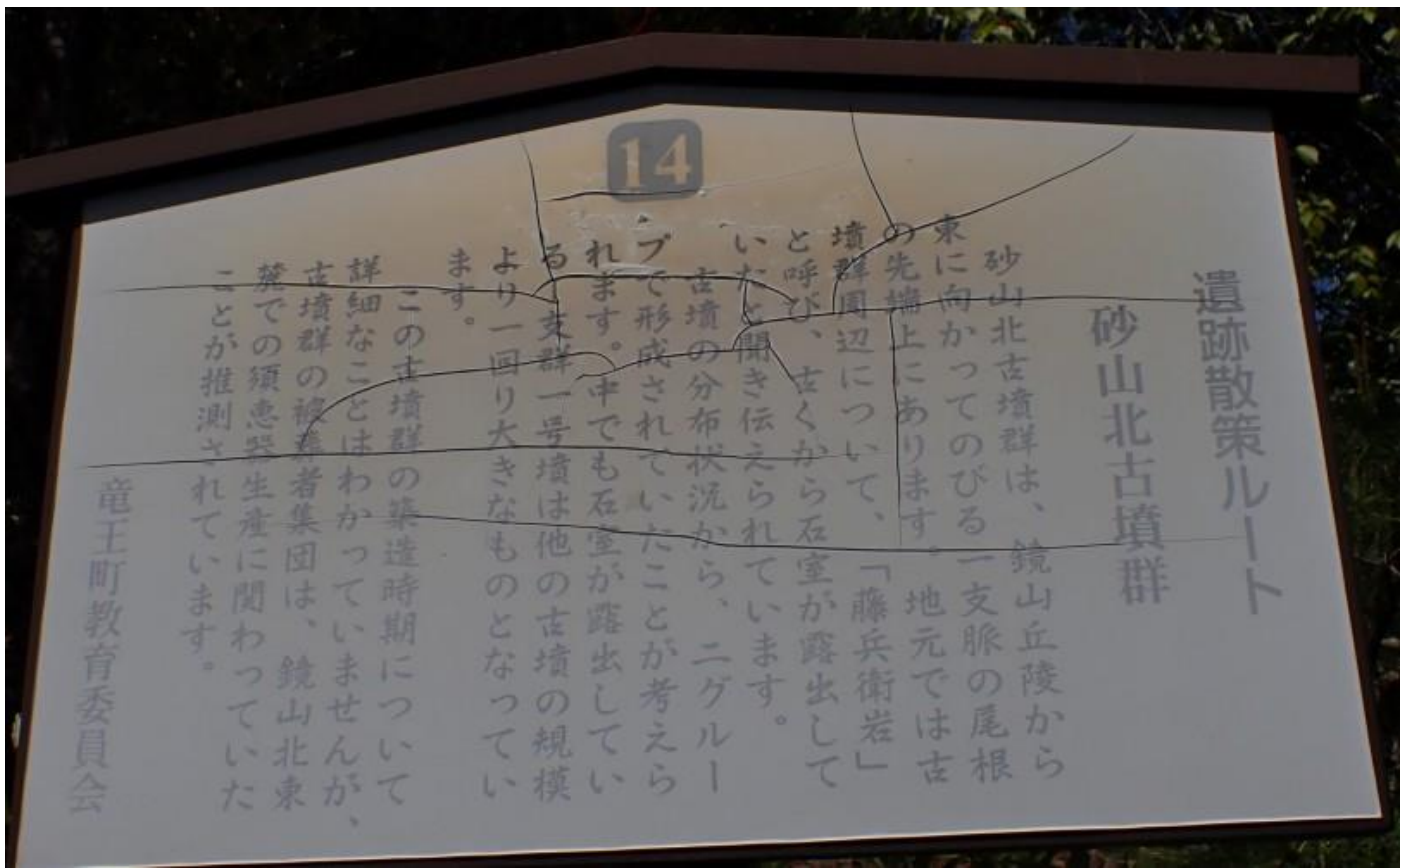 14
遺跡散策ルート
砂山北古墳群
砂山北古墳群は、鏡山丘陵から
東に向かってのびる一支脈の尾根
の先端上にあります。地元では古
墳群周辺について、「藤兵衛岩」
と呼び、古くから石室が露出して
いたと聞き伝えられています。
古墳の分布状況から、二グルー
プで形成されていたことが考えら
れます。中でも石室が露出してい
る支群一号墳は他の古墳の規模
より一回り大きなものとなってい
ます。
この古墳群の築造時期について
詳細なことはわかっていませんが、
古墳群の被葬者集団は、鏡山北東
麓での須恵器生産に関わっていた
ことが推測されています。
竜王町教育委員会